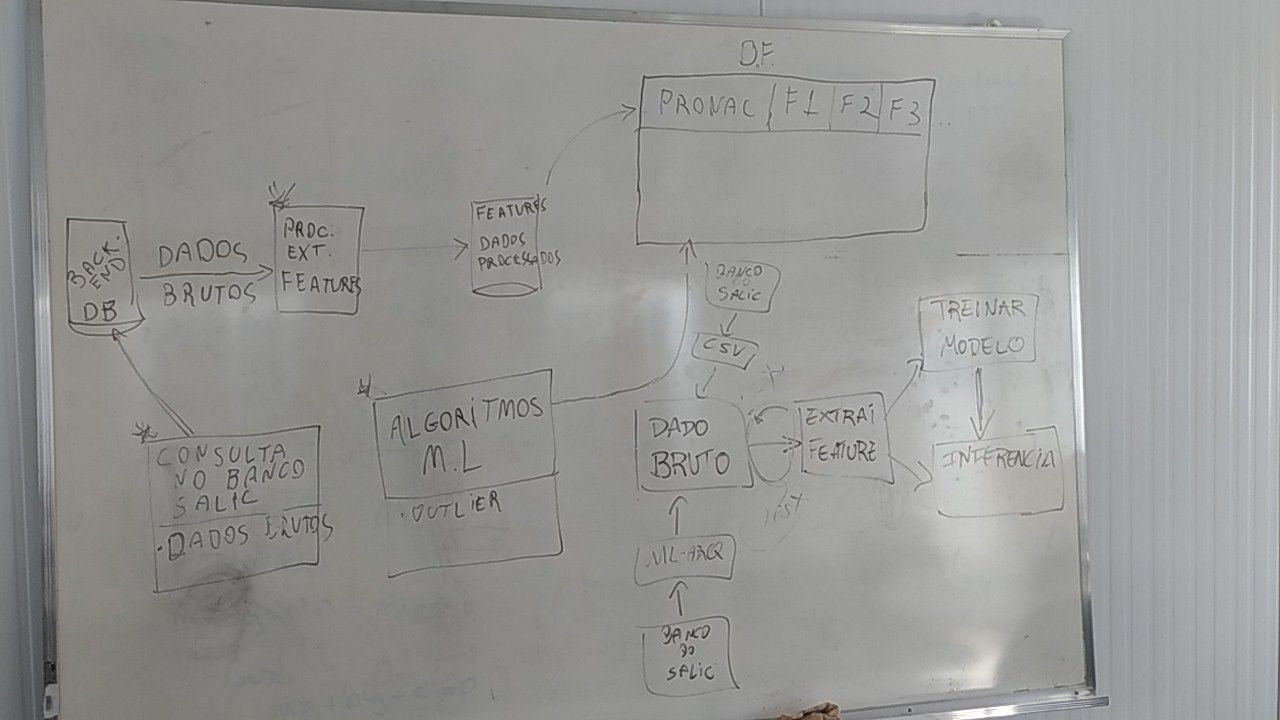 D.F.
PRONAC F1 F2 F3
BACK.
END
DB
DADOS
BRUTOS
PROC.
EXT.
FEATURES
FEATURES
DADOS
PROCESSADOS
CONSULTA
NO BANCO
SALIC
. DADOS BRUTOS
ALGORITMOS
M.L
. OUTLIER
BANCO
DO
SALIC
CSV
DADO
BRUTO
EXTRAI
FEATURE
TREINAR
MODELO
INFERENCIA
BANCO
DO
SALIC